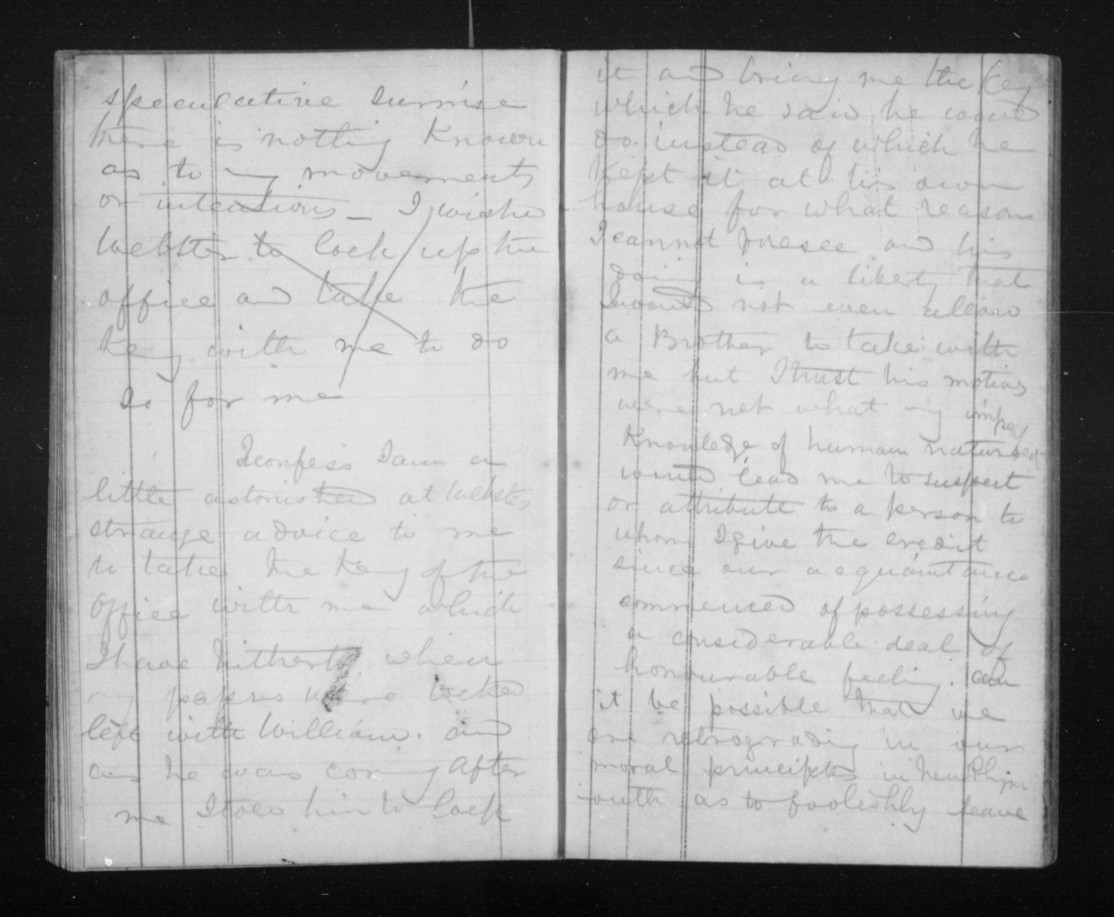 speculative surmise
there is nothing Known
as to my movements
or intentions _ I wished
Webster to lock up the
office and take the
Key with me to do
so for me
I confess I am a
little astonished at Websters
strange advice to me
to take the Key of the
office with me which
I have hitherto when
my papers were locked
left with William. and
as he was coming After
me I told him to lock
it and bring me the Key
which he said he would
do. instead of which he
Kept it at his own
house for what reason
I cannot foresee and his
doing is a liberty that
I would not even allow
a Brother to take with
me but I trust his motives
were not what my
Knowledge of human nature
would lead me to suspect
or attribute to a person to
whom I give the credit
since our acquaintance
commenced of possessing
a considerable deal of
honourable feeling. can
it be possible that we
are retrograding in our
moral principles in New Plym
outh as to foolishly leave